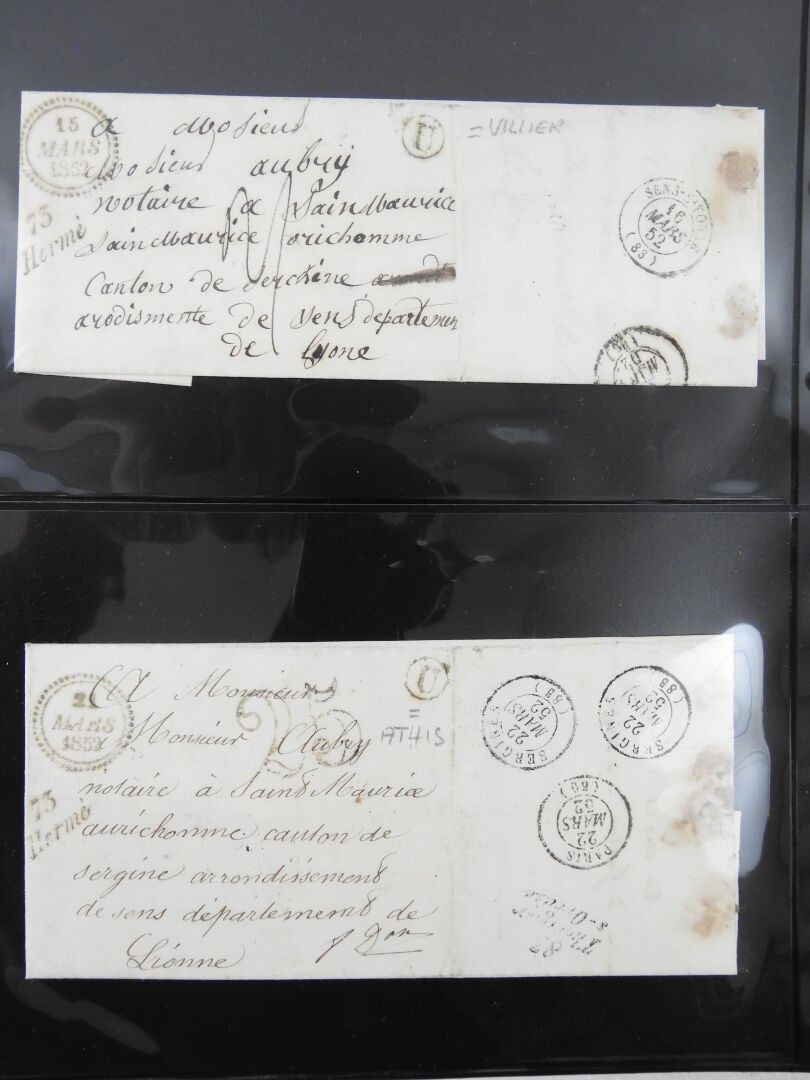 15
MARS
1852
73
Hermé
U
= VILLIER
A Mosieur
Mosieur aubry
notaire a Sain Maurice
Sain Maurice orichomme
Canton de serchine
arodismente de sens departemen
de Lyone
SENS-S-YONNE
16
MARS
52
(88)
2
MARS
1852
73
Hermé
U
=
ATHIS
25
A Monsieur
Monsieur Aubry
notaire à Saint Maurice
aurichomme canton de
sergine arrondissement
de sens département de
Lionne
SERGINES
22
MARS
52
(88)
SERGINES
22
MARS
52
(88)
PARIS
22
MARS
52
(60)